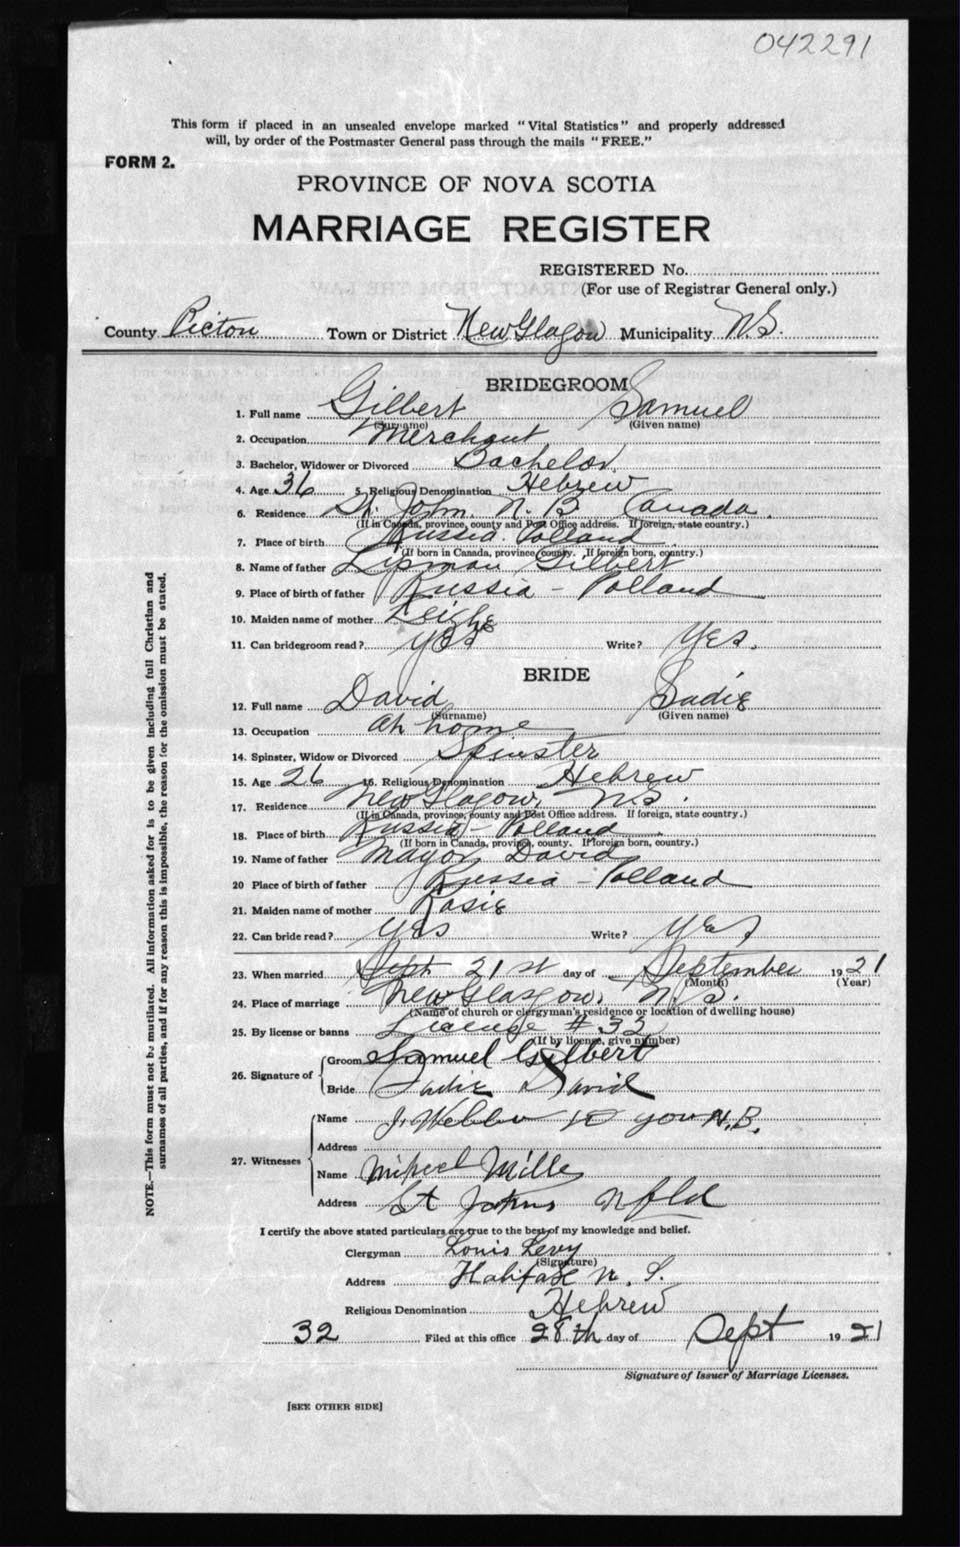 042291
This form if placed in an unsealed envelope marked "Vital Statistics" and properly addressed
will, by order of the Postmaster General pass through the mails "FREE."
FORM 2.
PROVINCE OF NOVA SCOTIA
MARRIAGE REGISTER
REGISTERED No.
(For use of Registrar General only.)
County Pictou Town or District New Glagow Municipality N.S.
BRIDEGROOM
1. Full name Gilbert Samuel
(Surname) (Given name)
2. Occupation Merchant
3. Bachelor, Widower or Divorced Bachelor
4. Age 36 5. Religious Denomination Hebrew
6. Residence St. John. N. B Canada.
(If in Canada, province, county and Post Office address. If foreign, state country.)
7. Place of birth Russia. Polland
(If born in Canada, province, county. If foreign born, country.)
8. Name of father Lipman Gilbert
9. Place of birth of father Russia - Polland
10. Maiden name of mother
11. Can bridegroom read? yes Write? Yes.
BRIDE
12. Full name David Sadie
(Surname) (Given name)
13. Occupation at home
14. Spinster, Widow or Divorced Spinster
15. Age 26 16. Religious Denomination Hebrew
17. Residence New Glagow, N.S.
(If in Canada, province, county and Post Office address. If foreign, state country.)
18. Place of birth Russia - Polland
(If born in Canada, province, county. If foreign born, country.)
19. Name of father Mayor David
20 Place of birth of father Russia - Polland
21. Maiden name of mother Rosie
22. Can bride read? yes Write? yes
23. When married Sept 21st day of September 1921
(Month) (Year)
24. Place of marriage New Glasgow, N.S.
(Name of church or clergyman's residence or location of dwelling house)
25. By license or banns License # 32
(If by license, give number)
26. Signature of
Groom Samuel Gilbert
Bride Sadie David
27. Witnesses
Name N.B.
Address
Name Mille
Address St Johns Nfld
I certify the above stated particulars are true to the best of my knowledge and belief.
Clergyman Louis Levy
(Signature)
Address Halifax N. S.
Religious Denomination Hebrew
32 Filed at this office 28th day of Sept 1921
Signature of Issuer of Marriage Licenses.
[SEE OTHER SIDE]
NOTE.—This form must not be mutilated. All information asked for is to be given including full Christian and
surnames of all parties, and if for any reason this is impossible, the reason for the omission must be stated.